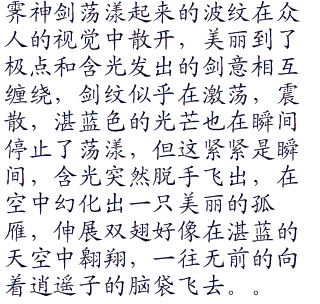 霁神剑荡漾起来的波纹在众
人的视觉中散开，美丽到了
极点和含光发出的剑意相互
缠绕，剑纹似乎在激荡，震
散，湛蓝色的光芒也在瞬间
停止了荡漾，但这紧紧是瞬
间，含光突然脱手飞出，在
空中幻化出一只美丽的孤
雁，伸展双翅好像在湛蓝的
天空中翱翔，一往无前的向
着逍遥子的脑袋飞去。。